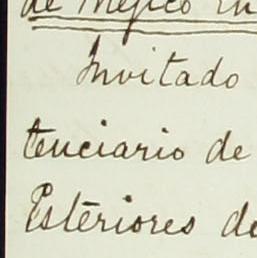 de Mejico en
Invitado
tenciario de
Esteriores de